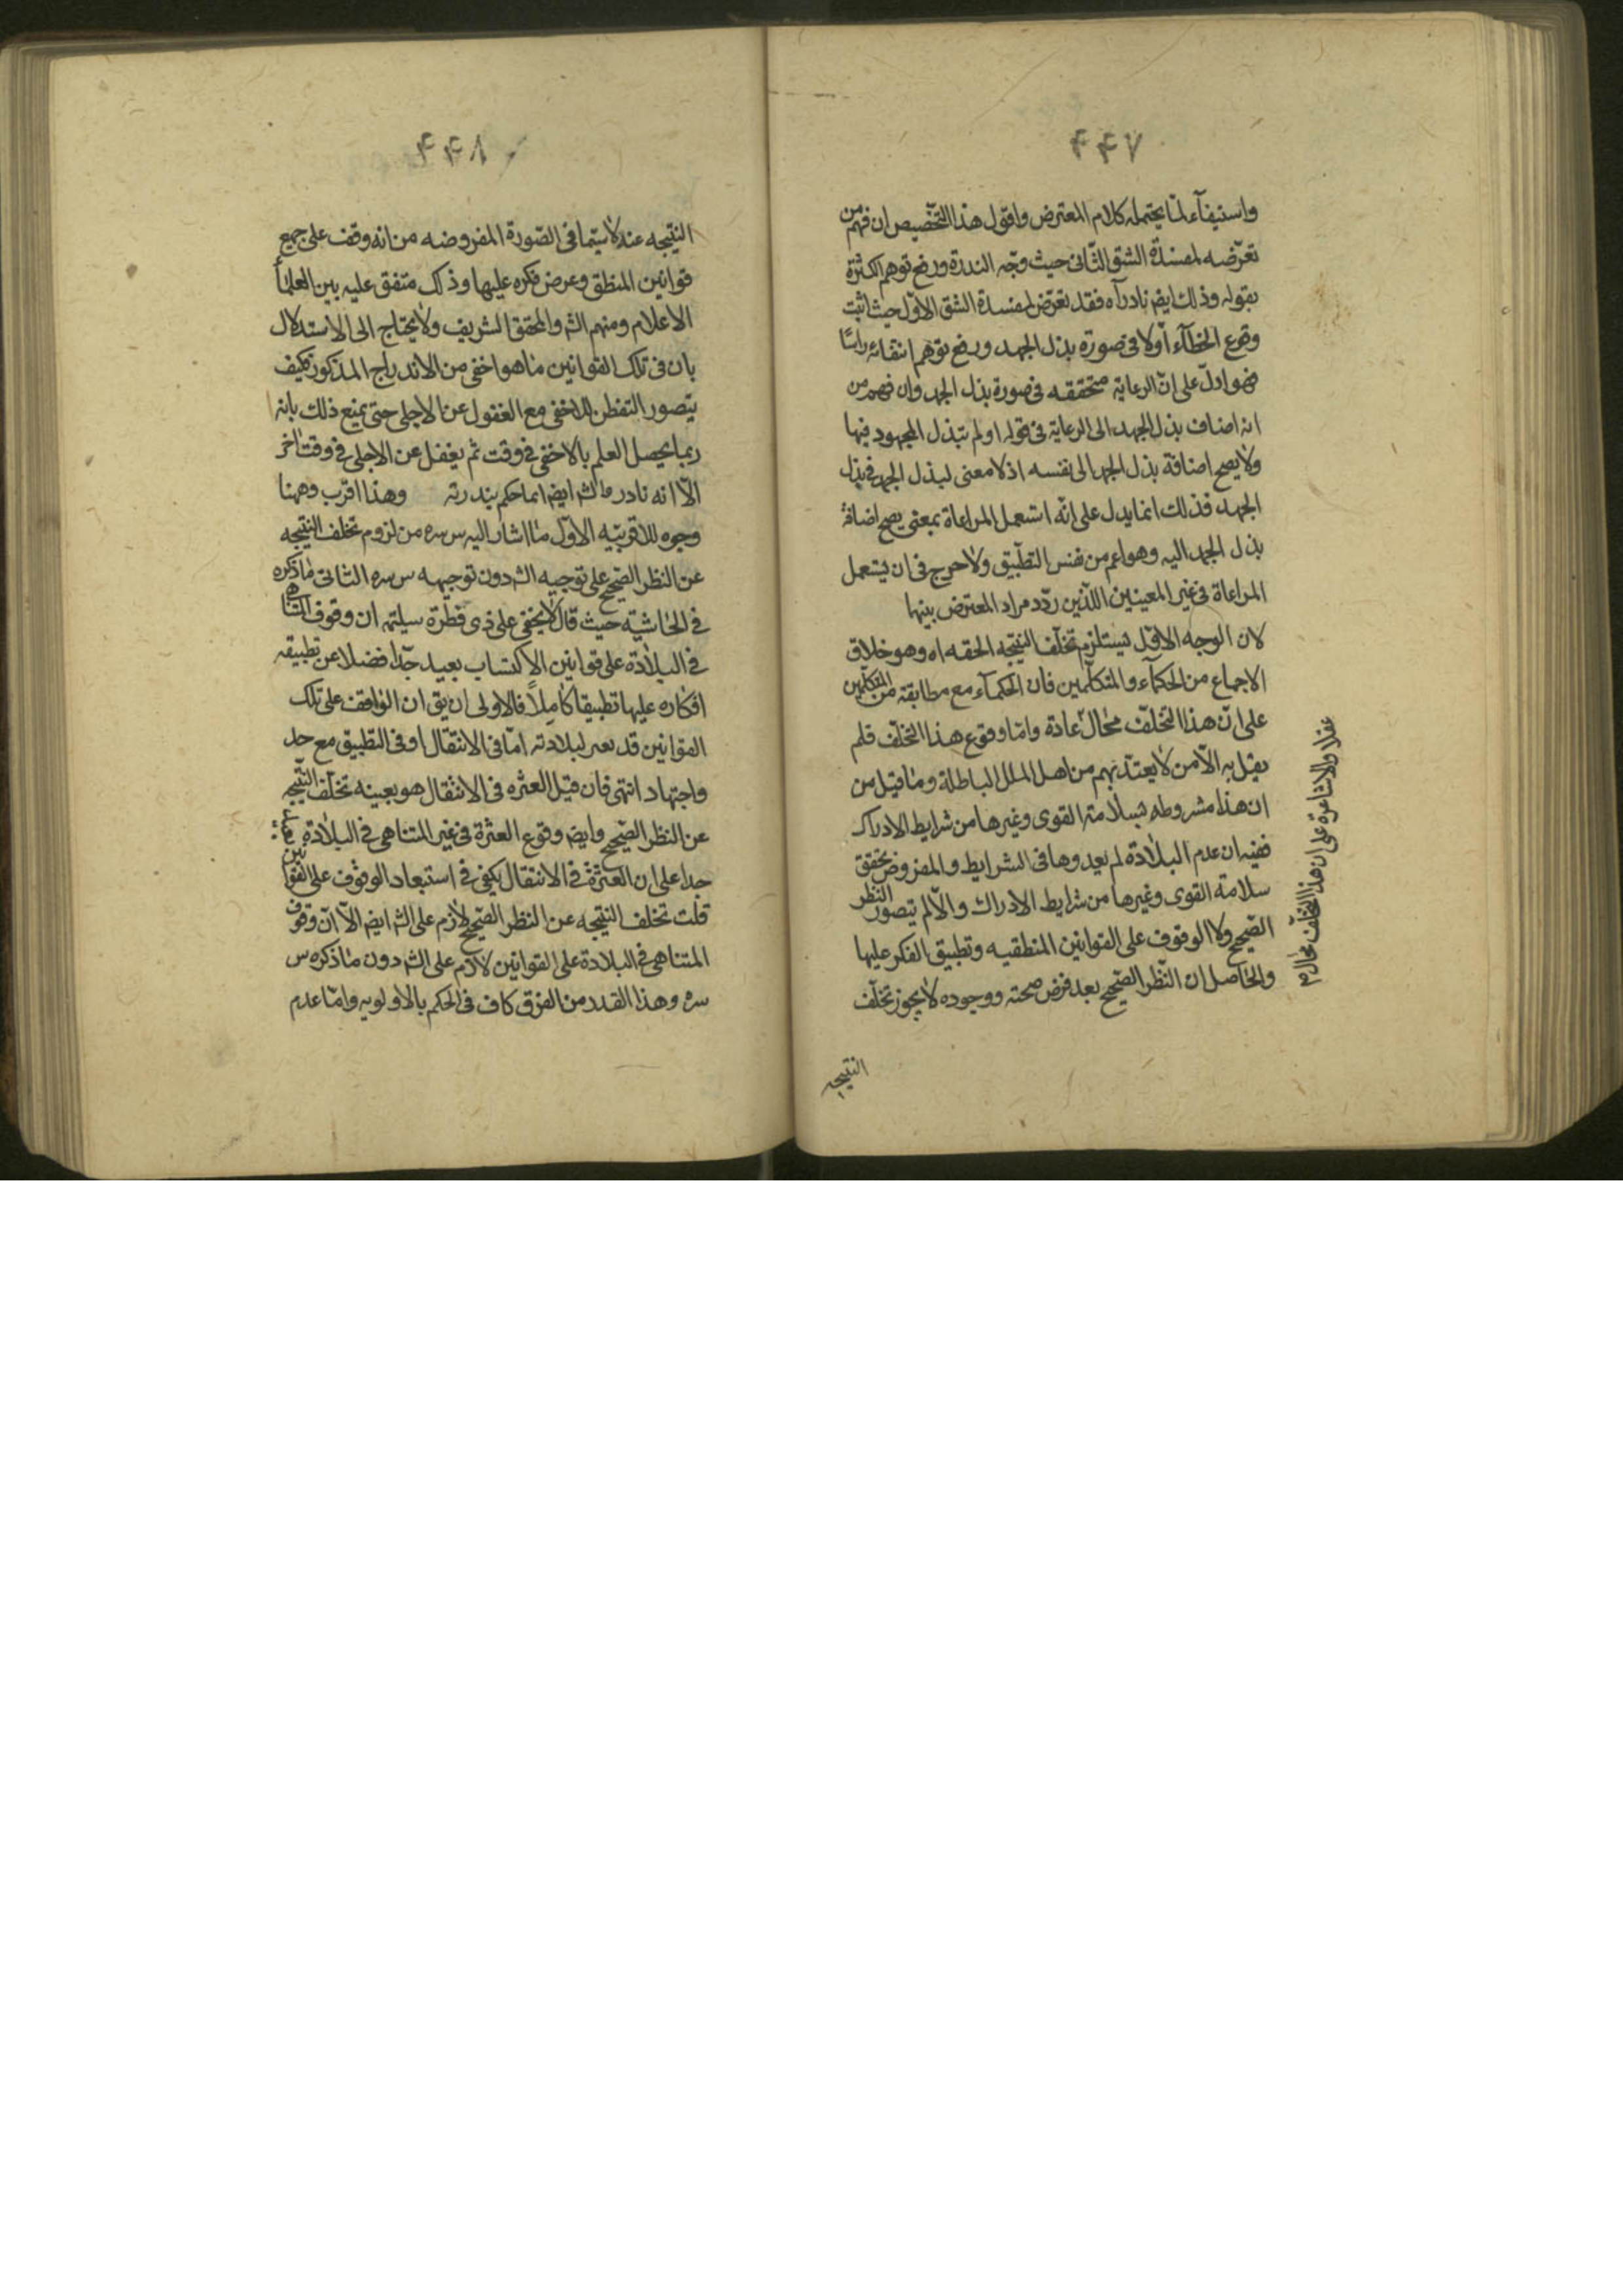 ۴۴۷
واستيفآء لما يحتمله كلام المعترض واقول هذا التخصيص ان فهم من
تعرّضه لمفسدة الشق الثانى حيث وجّه الندرة ورفع توهم الكثرة
بقوله وذلك ايضا نادر اه فقد تعرّض لمفسدة الشق الاوّل حيث اثبت
وقوع الخطآء اولا فى صورة بذل الجهد ورفع توهم انتفائه راسًا
فهو اولّ على انّ الرعاية متحققه فى صورة بذل الجهد وان فهم من
انه اضاف بذل الجهد الى الرعاية فى قوله او لم يتبذل المجهود فيها
ولا يصح اضافة بذل الجهد الى نفسه اذ لا معنى لبذل الجهد فى بذل
الجهد فذلك انما يدل على انّه استعمل المراعاة بمعنى يصح اضافة
بذل الجهد اليه وهو اعم من نفس التطبيق ولا حرج فى ان يستعمل
المراعاة فى غير المعينين اللّذين ردّد مراد المعترض بينها
لان الوجه الاوّل يستلزم تخلّف النتيجه الحقه اه وهو خلاف
الاجماع من الحكمآء والمتكلّمين فان الحكمآء مع مطابقة من المتكلّمين
على انّ هذا التخلّف محال عادة وامّا وقوع هذا التخلّف فلم
يقل به الّا من لا يعتدّ بهم من اهل الملل الباطلة وما قيل من
ان هذا مشروطه بسلامته القوى وغيرها من شرايط الادراك
ففيه ان عدم البلادة لم يعدوها فى الشرايط والمفروض تحقق
سلامة القوى وغيرها من شرايط الادراك والّا لم يتصور النظر
الصّحيح ولا الوقوف على القوانين المنطقيه وتطبيق الفكر عليها
والحاصل ان النّظر الصّحيح بعد فرض صحته ووجوده لا يجوز تخلّف
النتيجه
عقلا والاشاعرة على ان هذا التخلف محال
۴۴۸
النتيجه عنه لا سيّما فى الصّورة المفروضه من انه وقف على جميع
قوانين المنطق وعرض فكره عليها وذلك متفق عليه بين العلمآ
الاعلام ومنهم الشه والمحقق الشريف ولا يحتاج الى الاستدلال
بان فى تلك القوانين ما هو اخفى من الاندراج المذكور فكيف
يتصور التفطن للاخفى مع الغفول عن الاجلى حتى يمنع ذلك بانه
ربما يحصل العلم بالاخفى فى وقت ثم يغفل عن الاجلى فى وقت اخر
الّا انه نادر والشه ايضا انما حكم بندرته وهذا اقرب وههنا
وجوه للاقربيّه الاوّل ما اشار اليه س سره من لزوم تخلف النتيجه
عن النظر الصّحيح على توجيه الشه دون توجيهه س سره الثانى ما ذكره
فى الحاشيّه حيث قال لا يخفى على ذى فطرة سليمه ان وقوف المتناهى
فى البلادة على قوانين الاكتساب بعيد جّدا فضلا عن تطبيقه
افكاره عليها تطبيقا كاملاً فالاولى ان يق ان الواقف على تلك
القوانين قد يعسر لبلادته امّا فى الانتقال او فى التطبيق مع جد
واجتهاد انتهى فان قيل العثره فى الانتقال هو بعينه تخلّف النتيجه
عن النظر الصّحيح وايضا وقوع العثرة فى غير المتناهى فى البلادة
جدا على ان العثرة فى الانتقال يكفى فى استبعاد الوقوف على القوانين
قلت تخلف النتيجه عن النظر الصّحيح لازم على الشه ايضا الّا انّ وقوف
المتناهى فى البلادة على القوانين لازم على الشه دون ما ذكره س
سره وهذا القدر من الفرق كاف فى الحكم بالاولويه وامّا عدم